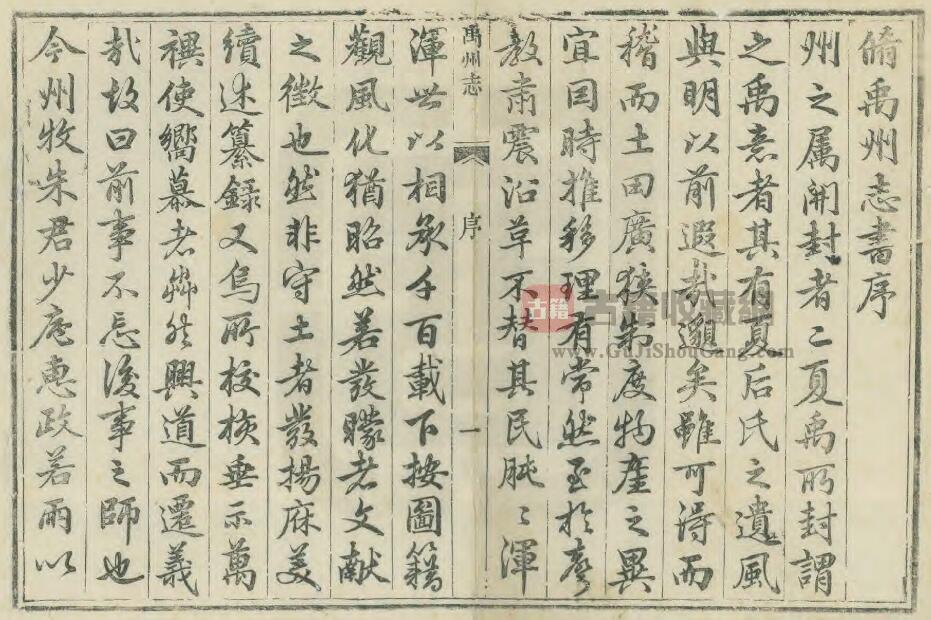 脩禹州志書序
州之属開封者二夏禹所封謂
之禹意者其有夏后氏之遺風
與明以前遐哉邈矣雖可得而
稽而土田廣狹制度物產之異
宜因時推移理有常然至於
教肅震沿革不替其民肫〻渾
禹州志 序 一
渾世以相承千百載下按圖籍
觀風化猶昭然若發矇者文献
之徵也然非守土者發揚庥美
續述纂録又烏所校核垂示萬
禩使嚮慕者然興道而遷義
哉故曰前事不忘後事之師也
今州牧朱君少庵惠政若雨以
古籍
古籍收藏網
www.GuJiShouGang.com